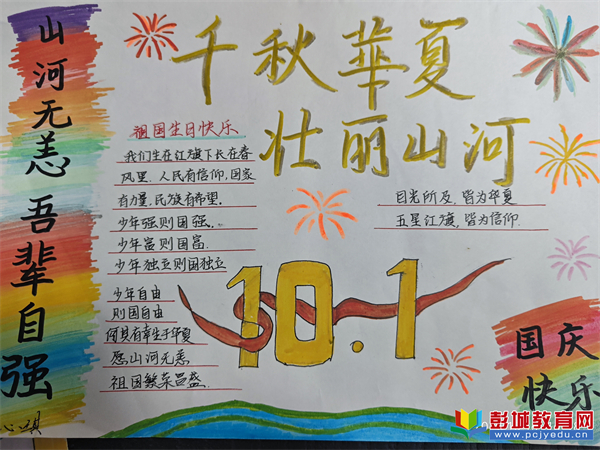 山河无恙 吾辈自强
千秋華夏
壮丽山河
祖国生日快乐
我们生在红旗下长在春
风里，人民有信仰，国家
有力量，民族有希望。
少年强则国强，
少年富则国富，
少年独立则国独立
少年自由
则国自由
何其有幸生于华夏
愿山河无恙
祖国繁荣昌盛
目光所及，皆为华夏
五星红旗，皆为信仰．
10.1
国庆
快乐
彭城教育网
www.pcjyedu.cn